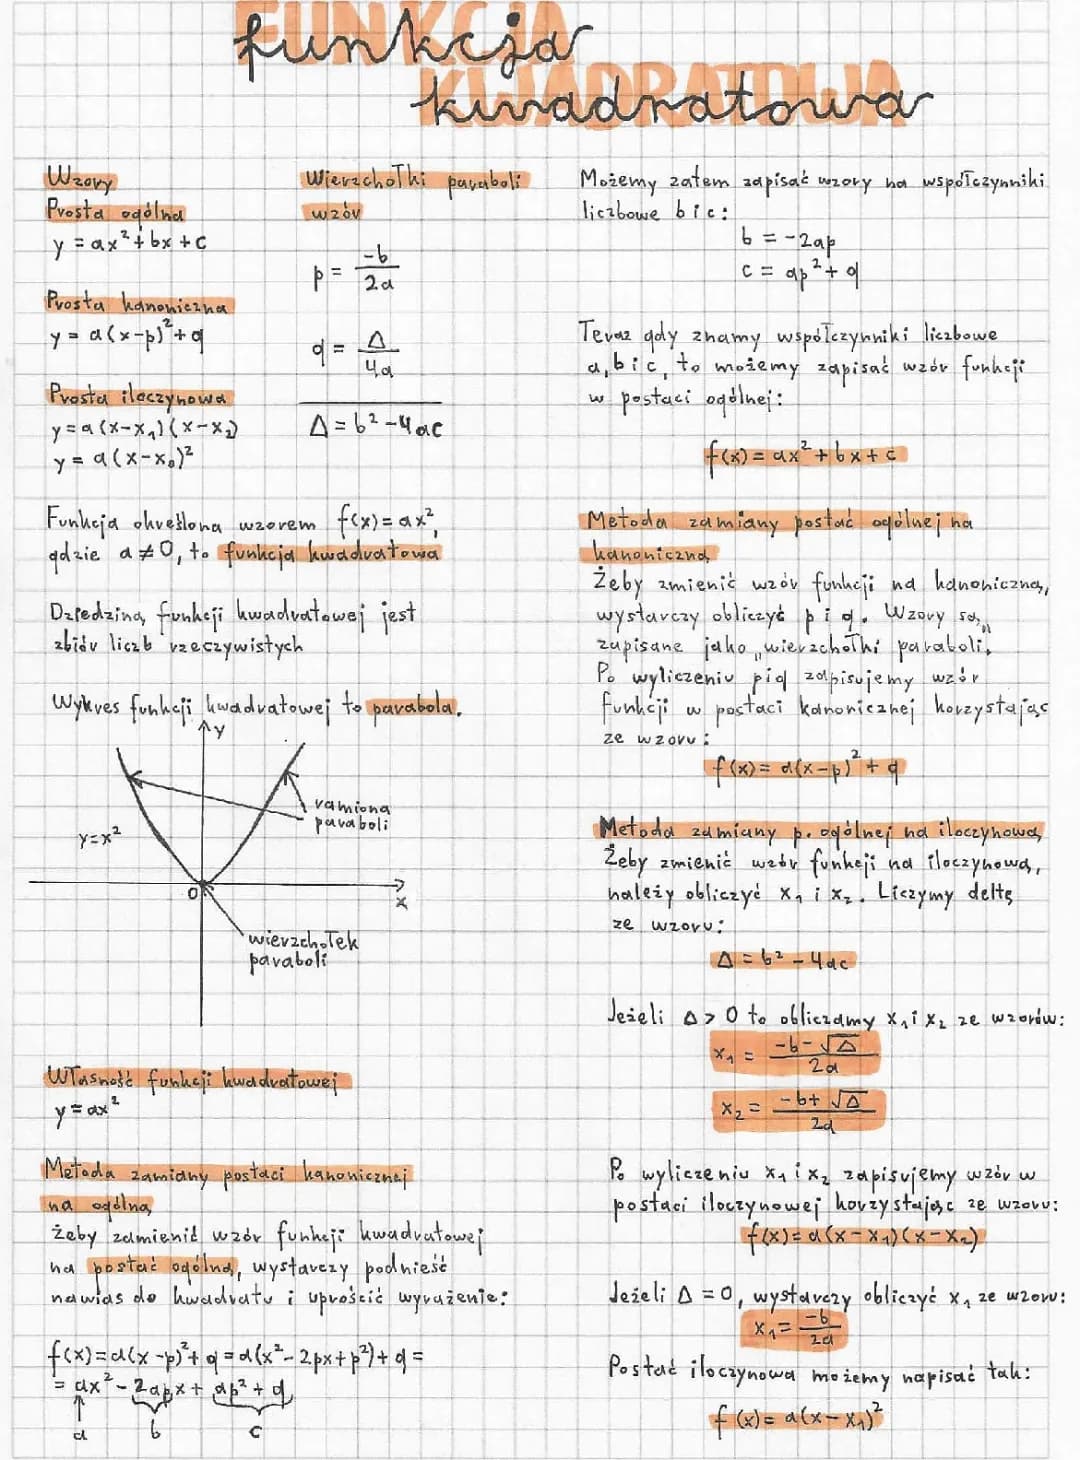 FUNKCJA
KWADRATOWA
funkcja
kwadratowa
Wzory
Prosta ogólna
y = ax² + bx + c
Prosta kanoniczna
y = a(x-p)² + q
Prosta iloczynowa
y = a(x-x₁)(x-x₂)
y = a(x-x₀)²
Wierzchołki paraboli
wzór
p = -b/2a
q = Δ/4a
Δ = b² - 4ac
Funkcja określona wzorem f(x) = ax²,
gdzie a ≠ 0, to funkcja kwadratowa
Dziedziną funkcji kwadratowej jest
zbiór liczb rzeczywistych
Wykres funkcji kwadratowej to parabola.
y
y=x²
ramiona
paraboli
0
x
wierzchołek
paraboli
Własność funkcji kwadratowej
y = ax²
Metoda zamiany postaci kanonicznej
na ogólną
Żeby zamienić wzór funkcji kwadratowej
na postać ogólną, wystarczy podnieść
nawias do kwadratu i uprościć wyrażenie:
f(x) = a(x-p)² + q = a(x² - 2px + p²) + q =
= ax² - 2apx + ap² + q
a b c
Możemy zatem zapisać wzory na współczynniki
liczbowe b i c:
b = -2ap
c = ap² + q
Teraz gdy znamy współczynniki liczbowe
a, b i c, to możemy zapisać wzór funkcji
w postaci ogólnej:
f(x) = ax² + bx + c
Metoda zamiany postać ogólnej na
kanoniczną
Żeby zmienić wzór funkcji na kanoniczną,
wystarczy obliczyć p i q. Wzory są
zapisane jako „wierzchołki paraboli".
Po wyliczeniu p i q zapisujemy wzór
funkcji w postaci kanonicznej korzystając
ze wzoru:
f(x) = a(x-p)² + q
Metoda zamiany p. ogólnej na iloczynową
Żeby zmienić wzór funkcji na iloczynową,
należy obliczyć x₁ i x₂. Liczymy deltę
ze wzoru:
Δ = b² - 4ac
Jeżeli Δ > 0 to obliczamy x₁ i x₂ ze wzorów:
x₁ = -b-√Δ/2a
x₂ = -b+√Δ/2a
Po wyliczeniu x₁ i x₂ zapisujemy wzór w
postaci iloczynowej korzystając ze wzoru:
f(x) = a(x-x₁)(x-x₂)
Jeżeli Δ = 0, wystarczy obliczyć x₁ ze wzoru:
x₁ = -b/2a
Postać iloczynowa możemy napisać tak:
f(x) = a(x-x₁)²